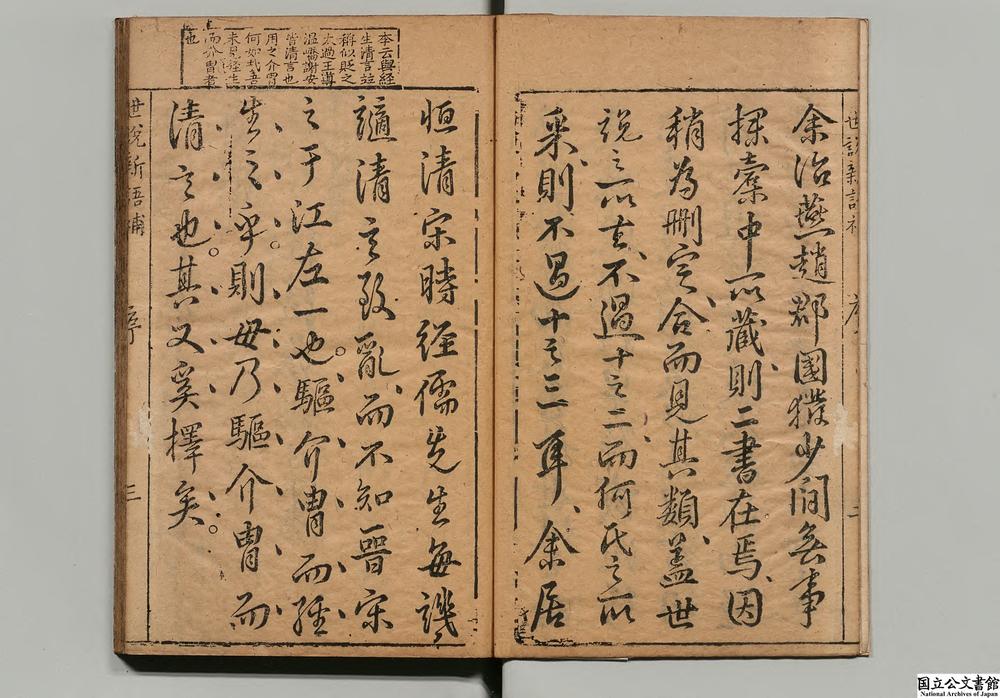 世說新語補 序 二
余治燕趙郡國獄少間無事
探橐中所藏則二書在焉因
稍為刪定合而見其類蓋世
說之所去不過十之二而何氏之所
采則不過十之三耳余居
李云與經
生清言註
稱似貶之
太過王導
温嶠謝安
皆清言也
用之介冑
何如哉吾
未見經生
而介冑者
也
恒清宋時經儒先生每譏
謫清言致亂而不知晉宋
之于江左一也驅介冑而經
生之乎則毋乃驅介冑而
清言也其又奚擇矣
世說新語補 序 三
国立公文書館
National Archives of Japan